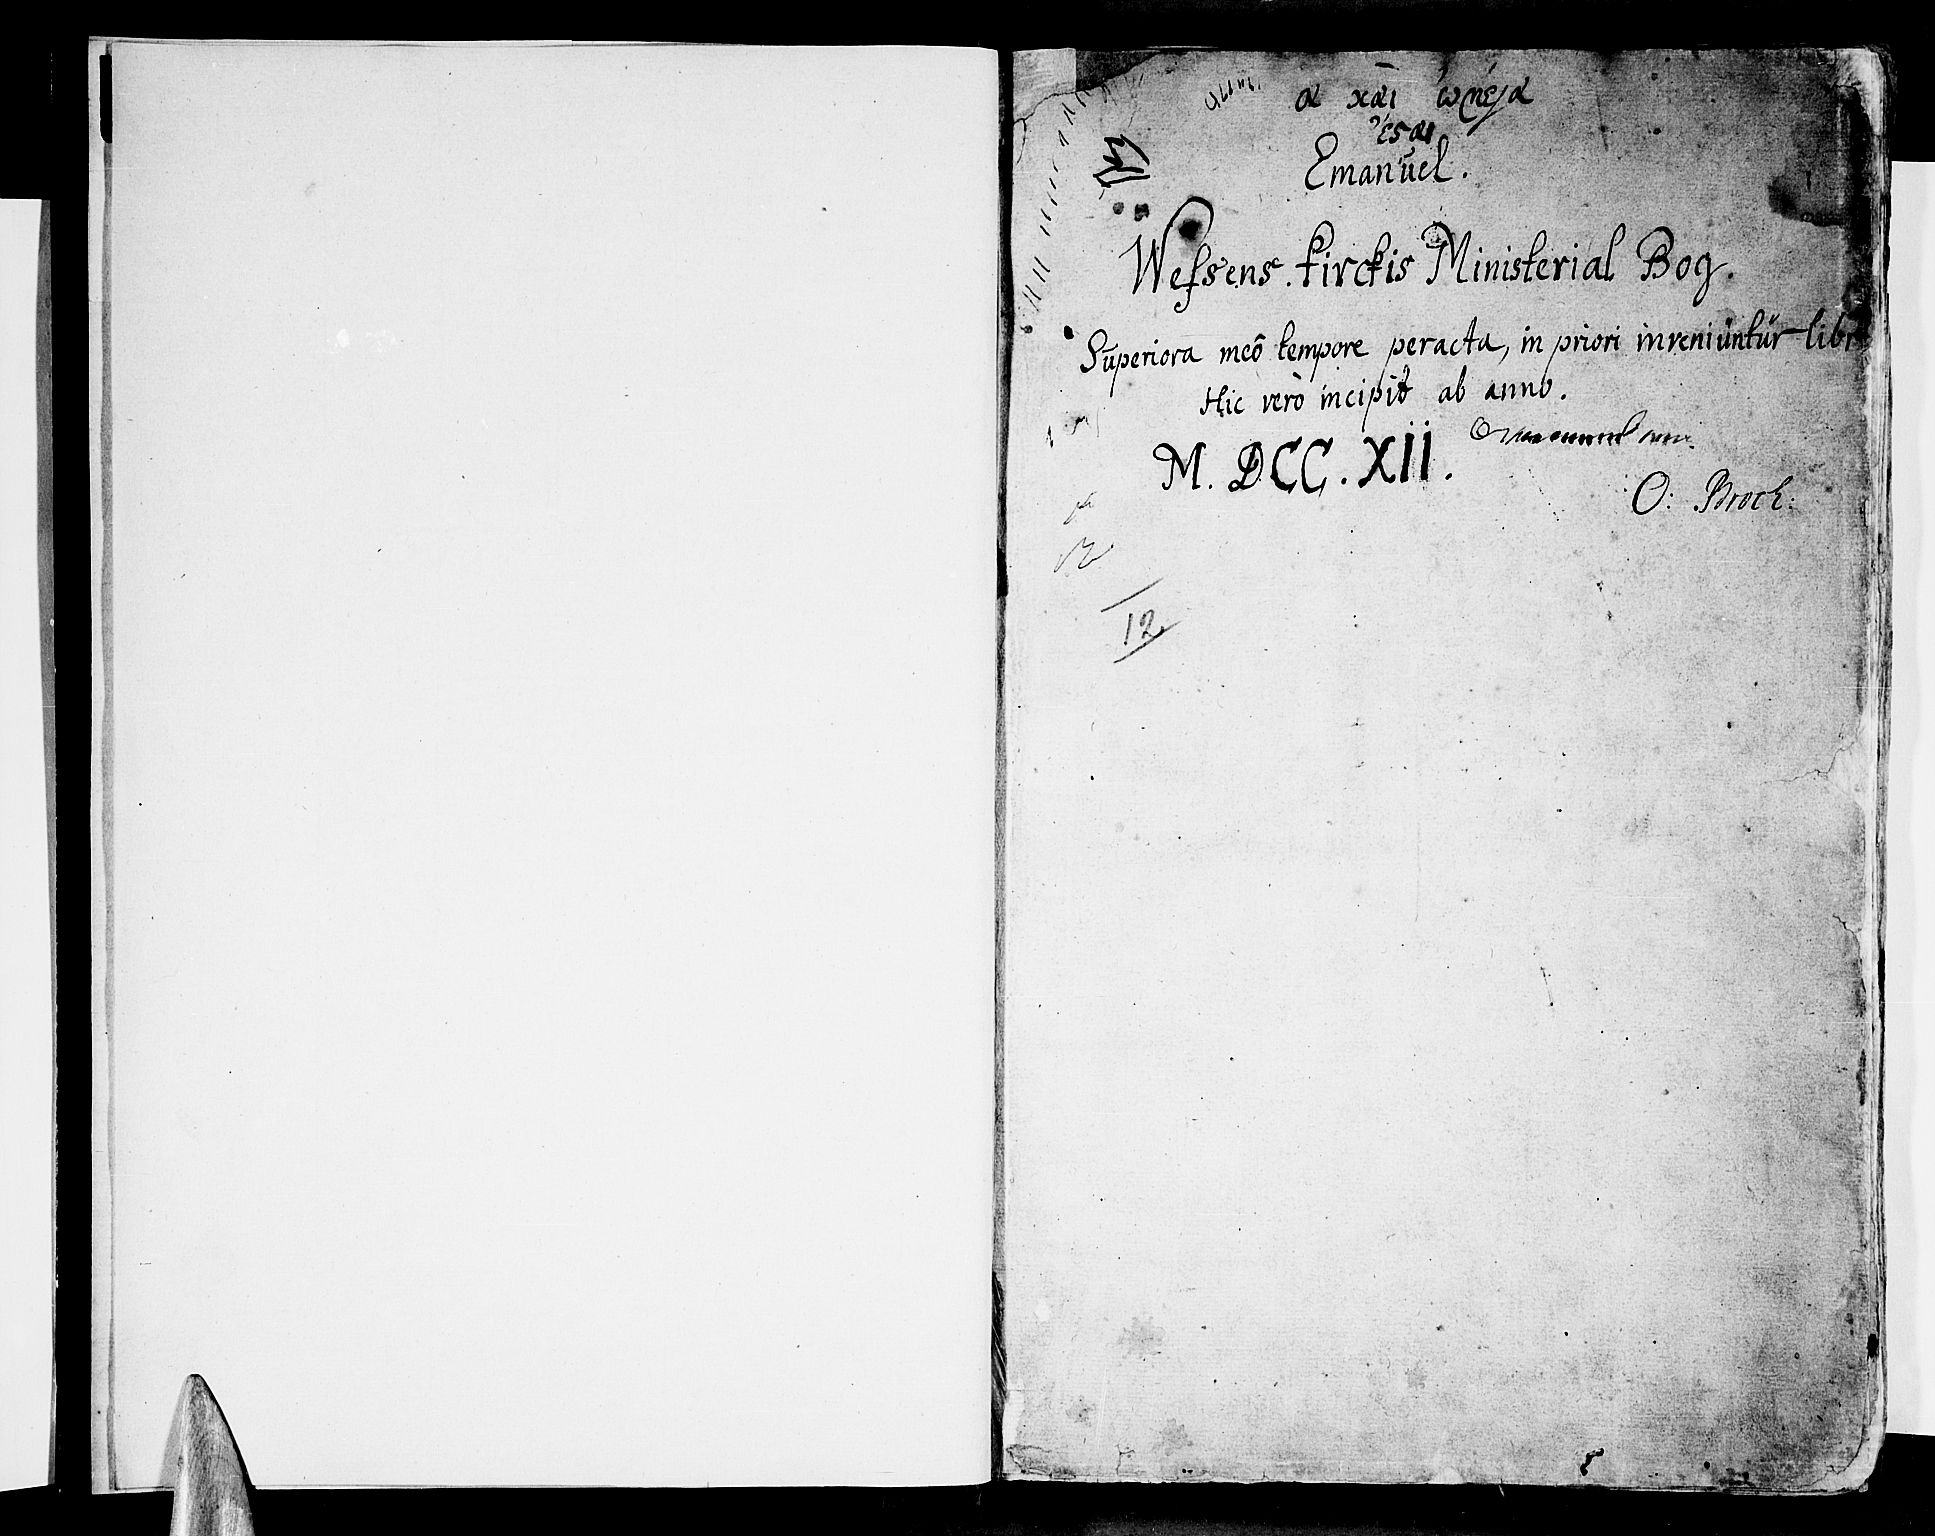 α καὶ ὠμέγα
ἐσαι
Emanuel.
Wessens kirckis Ministerial Bog.
Superiora meô tempore peracta, in priori inveniuntur libr
Hic verò incipit ab anno.
M. DCC. XII.
O: Broch:
12